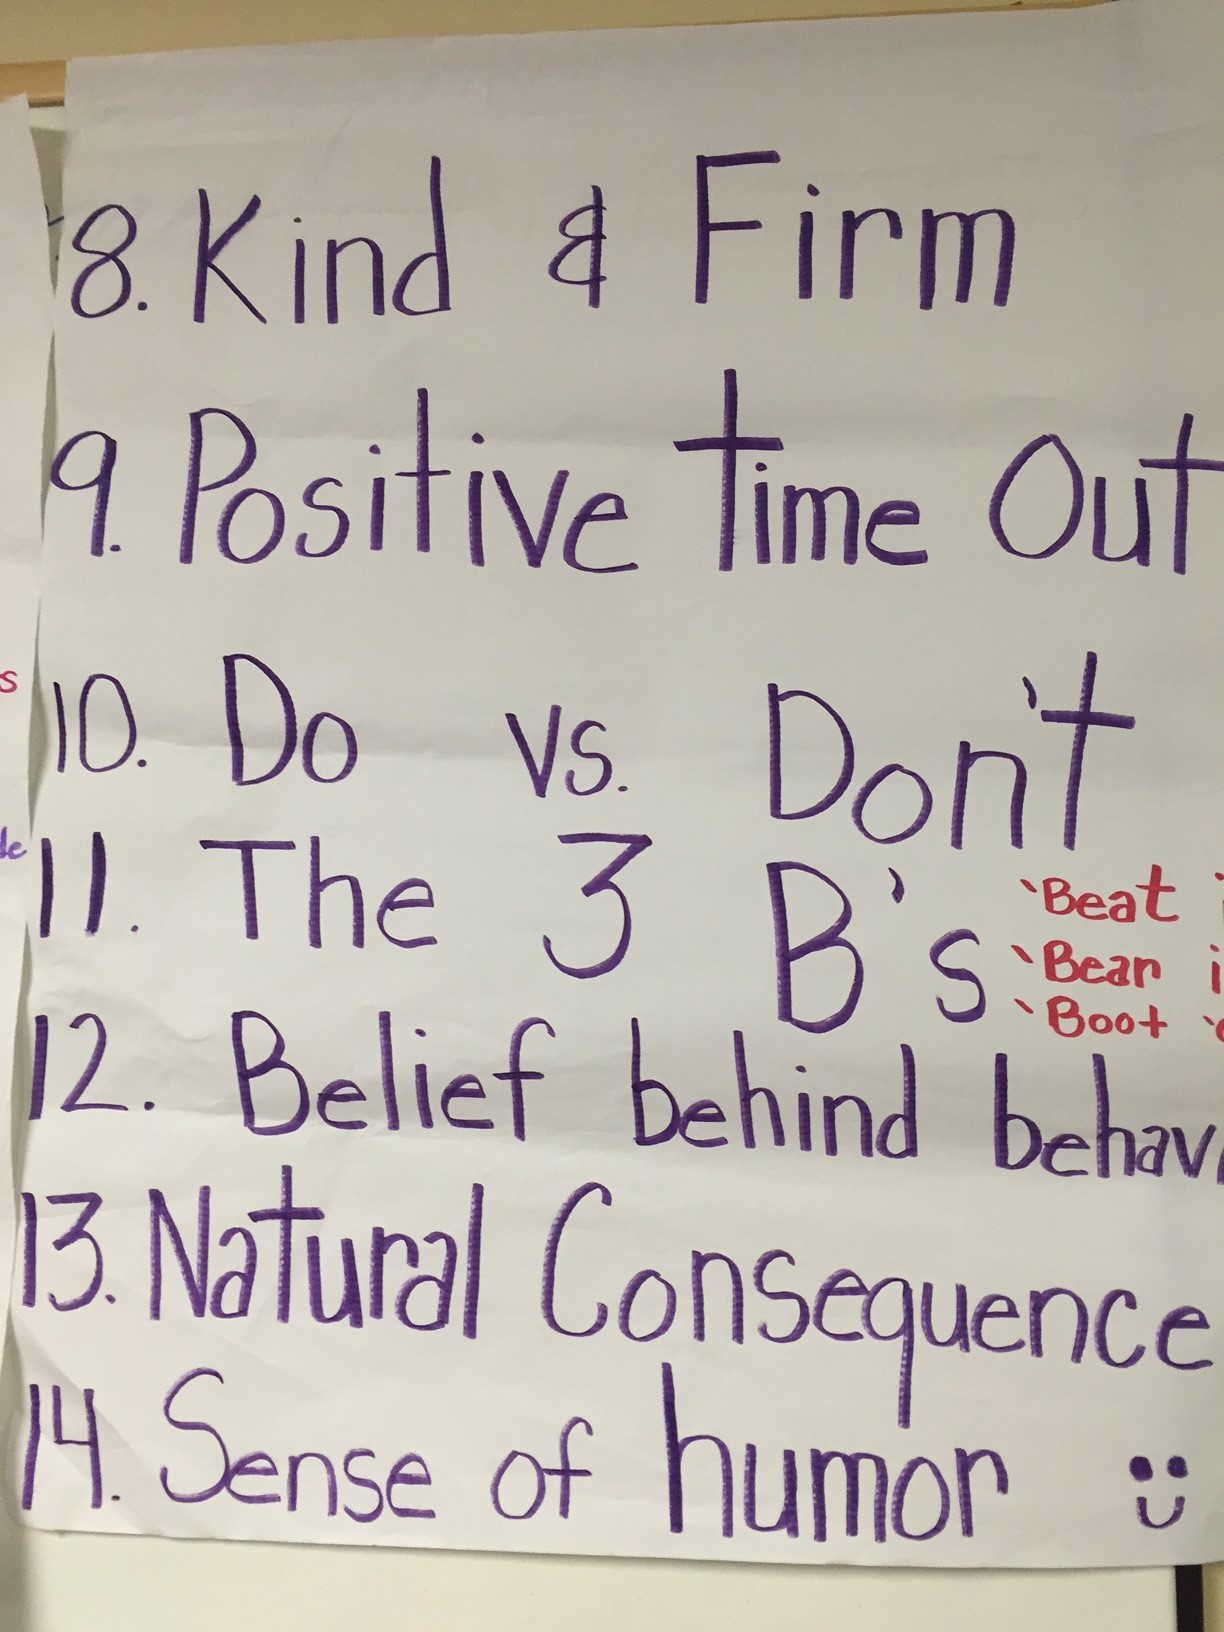 8. Kind & Firm
9. Positive Time Out
10. Do vs. Don't
11. The 3 B's
Beat
Bear
Boot
12. Belief behind
13. Natural Consequence
14. Sense of humor